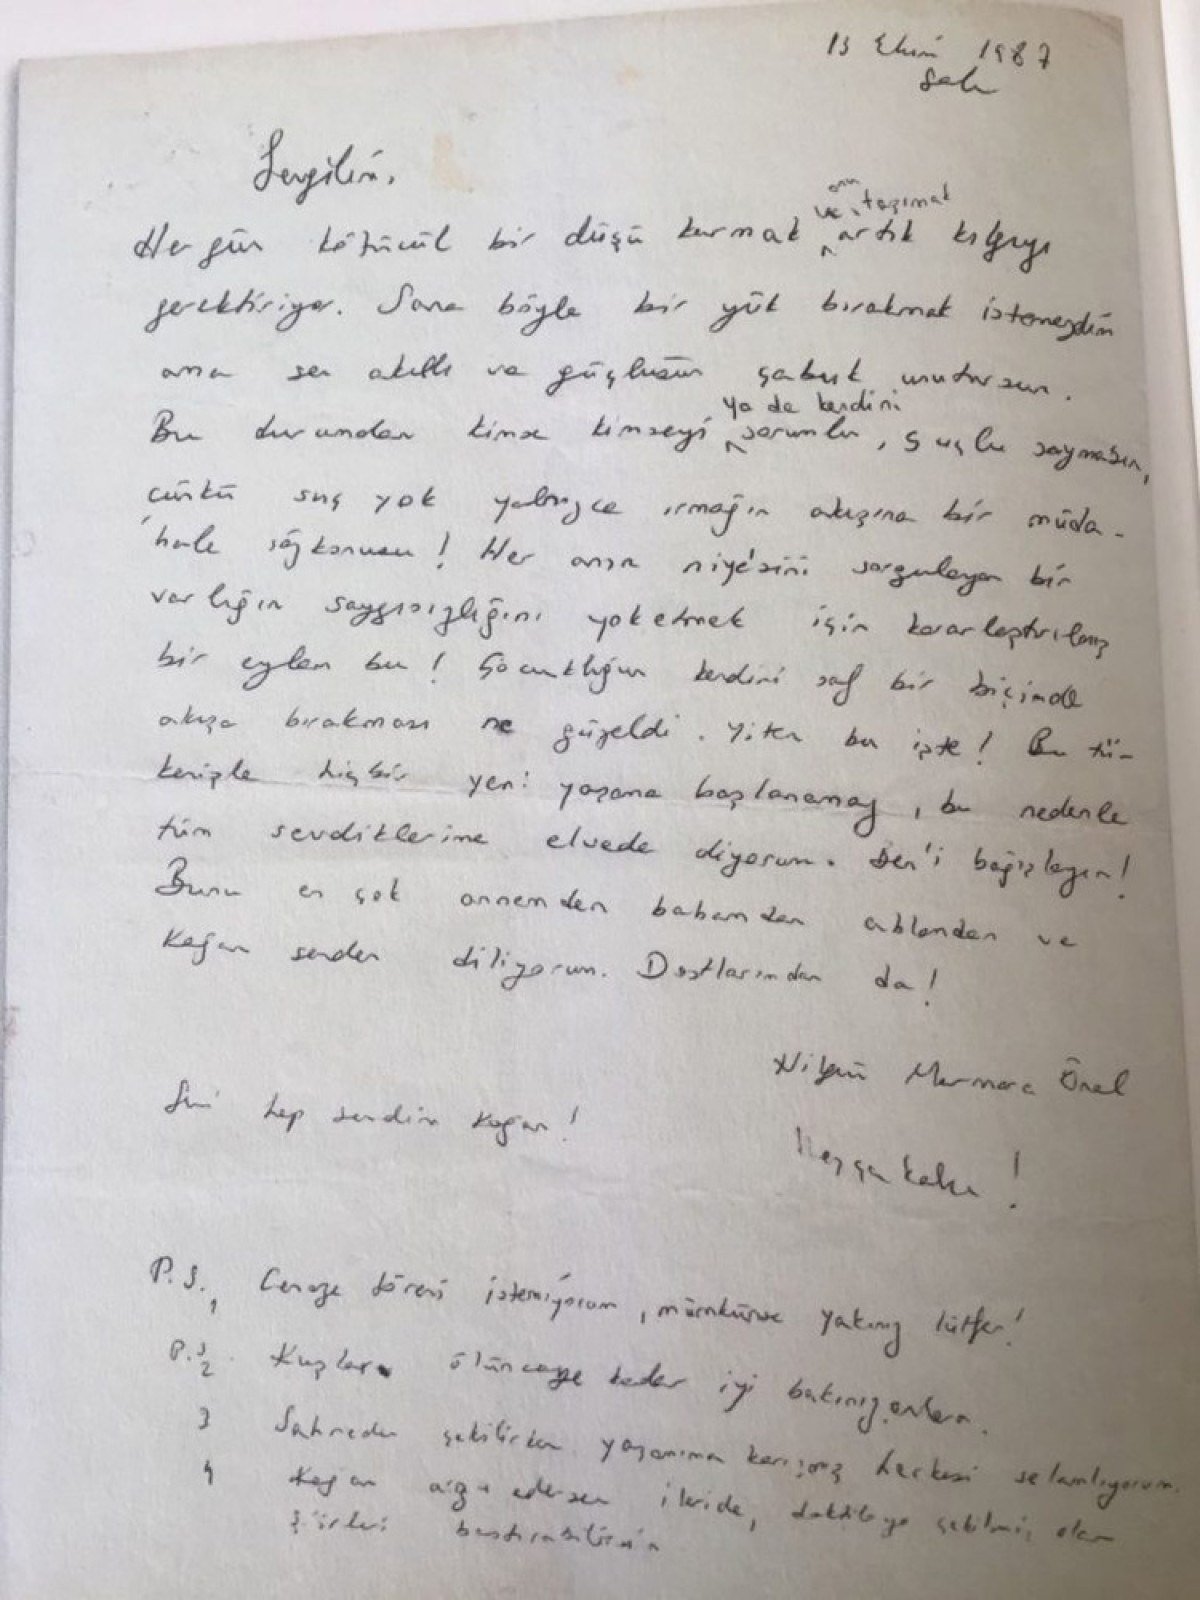 13 Ekim 1987
Salı
Sevgilim,
onu
ve taşımak
Her gün kötücül bir düşü kurmak artık kılgıyı
gerektiriyor. Sana böyle bir yük bırakmak istemezdim
ama sen akıllı ve güçlüsün çabuk unutursun.
ya da kendini
Bu durumdan kimse kimseyi sorumlu, suçlu saymasın,
çünkü suç yok yalnızca ırmağın akışına bir müda-
hale sözkonusu! Her anın niye'sini sorgulayan bir
varlığın saygısızlığını yoketmek için kararlaştırılmış
bir eylem bu! Çocukluğun kendini saf bir biçimde
akışa bırakması ne güzeldi. Yiten bu işte! Bu tü-
kenişle hiçbir yeni yaşama başlanamaz, bu nedenle
tüm sevdiklerime elveda diyorum. Ben'i bağışlayın!
Bunu en çok annemden babamdan ablamdan ve
Kağan senden diliyorum. Dostlarımdan da!
Nilgün Marmara Önal
Seni hep sevdim Kağan!
Hoşça kalın!
P.S.1 Cenaze töreni istemiyorum, mümkünse yakınız lütfen!
P.S.2. Kuşlara ölünceye kadar iyi bakınız onlara.
3 Sahneden çekilirken yaşamıma karışmış herkesi selamlıyorum.
4 Kağan arzu edersen ileride, daktiloya çekilmiş olan
şiirleri bastırabilirsin